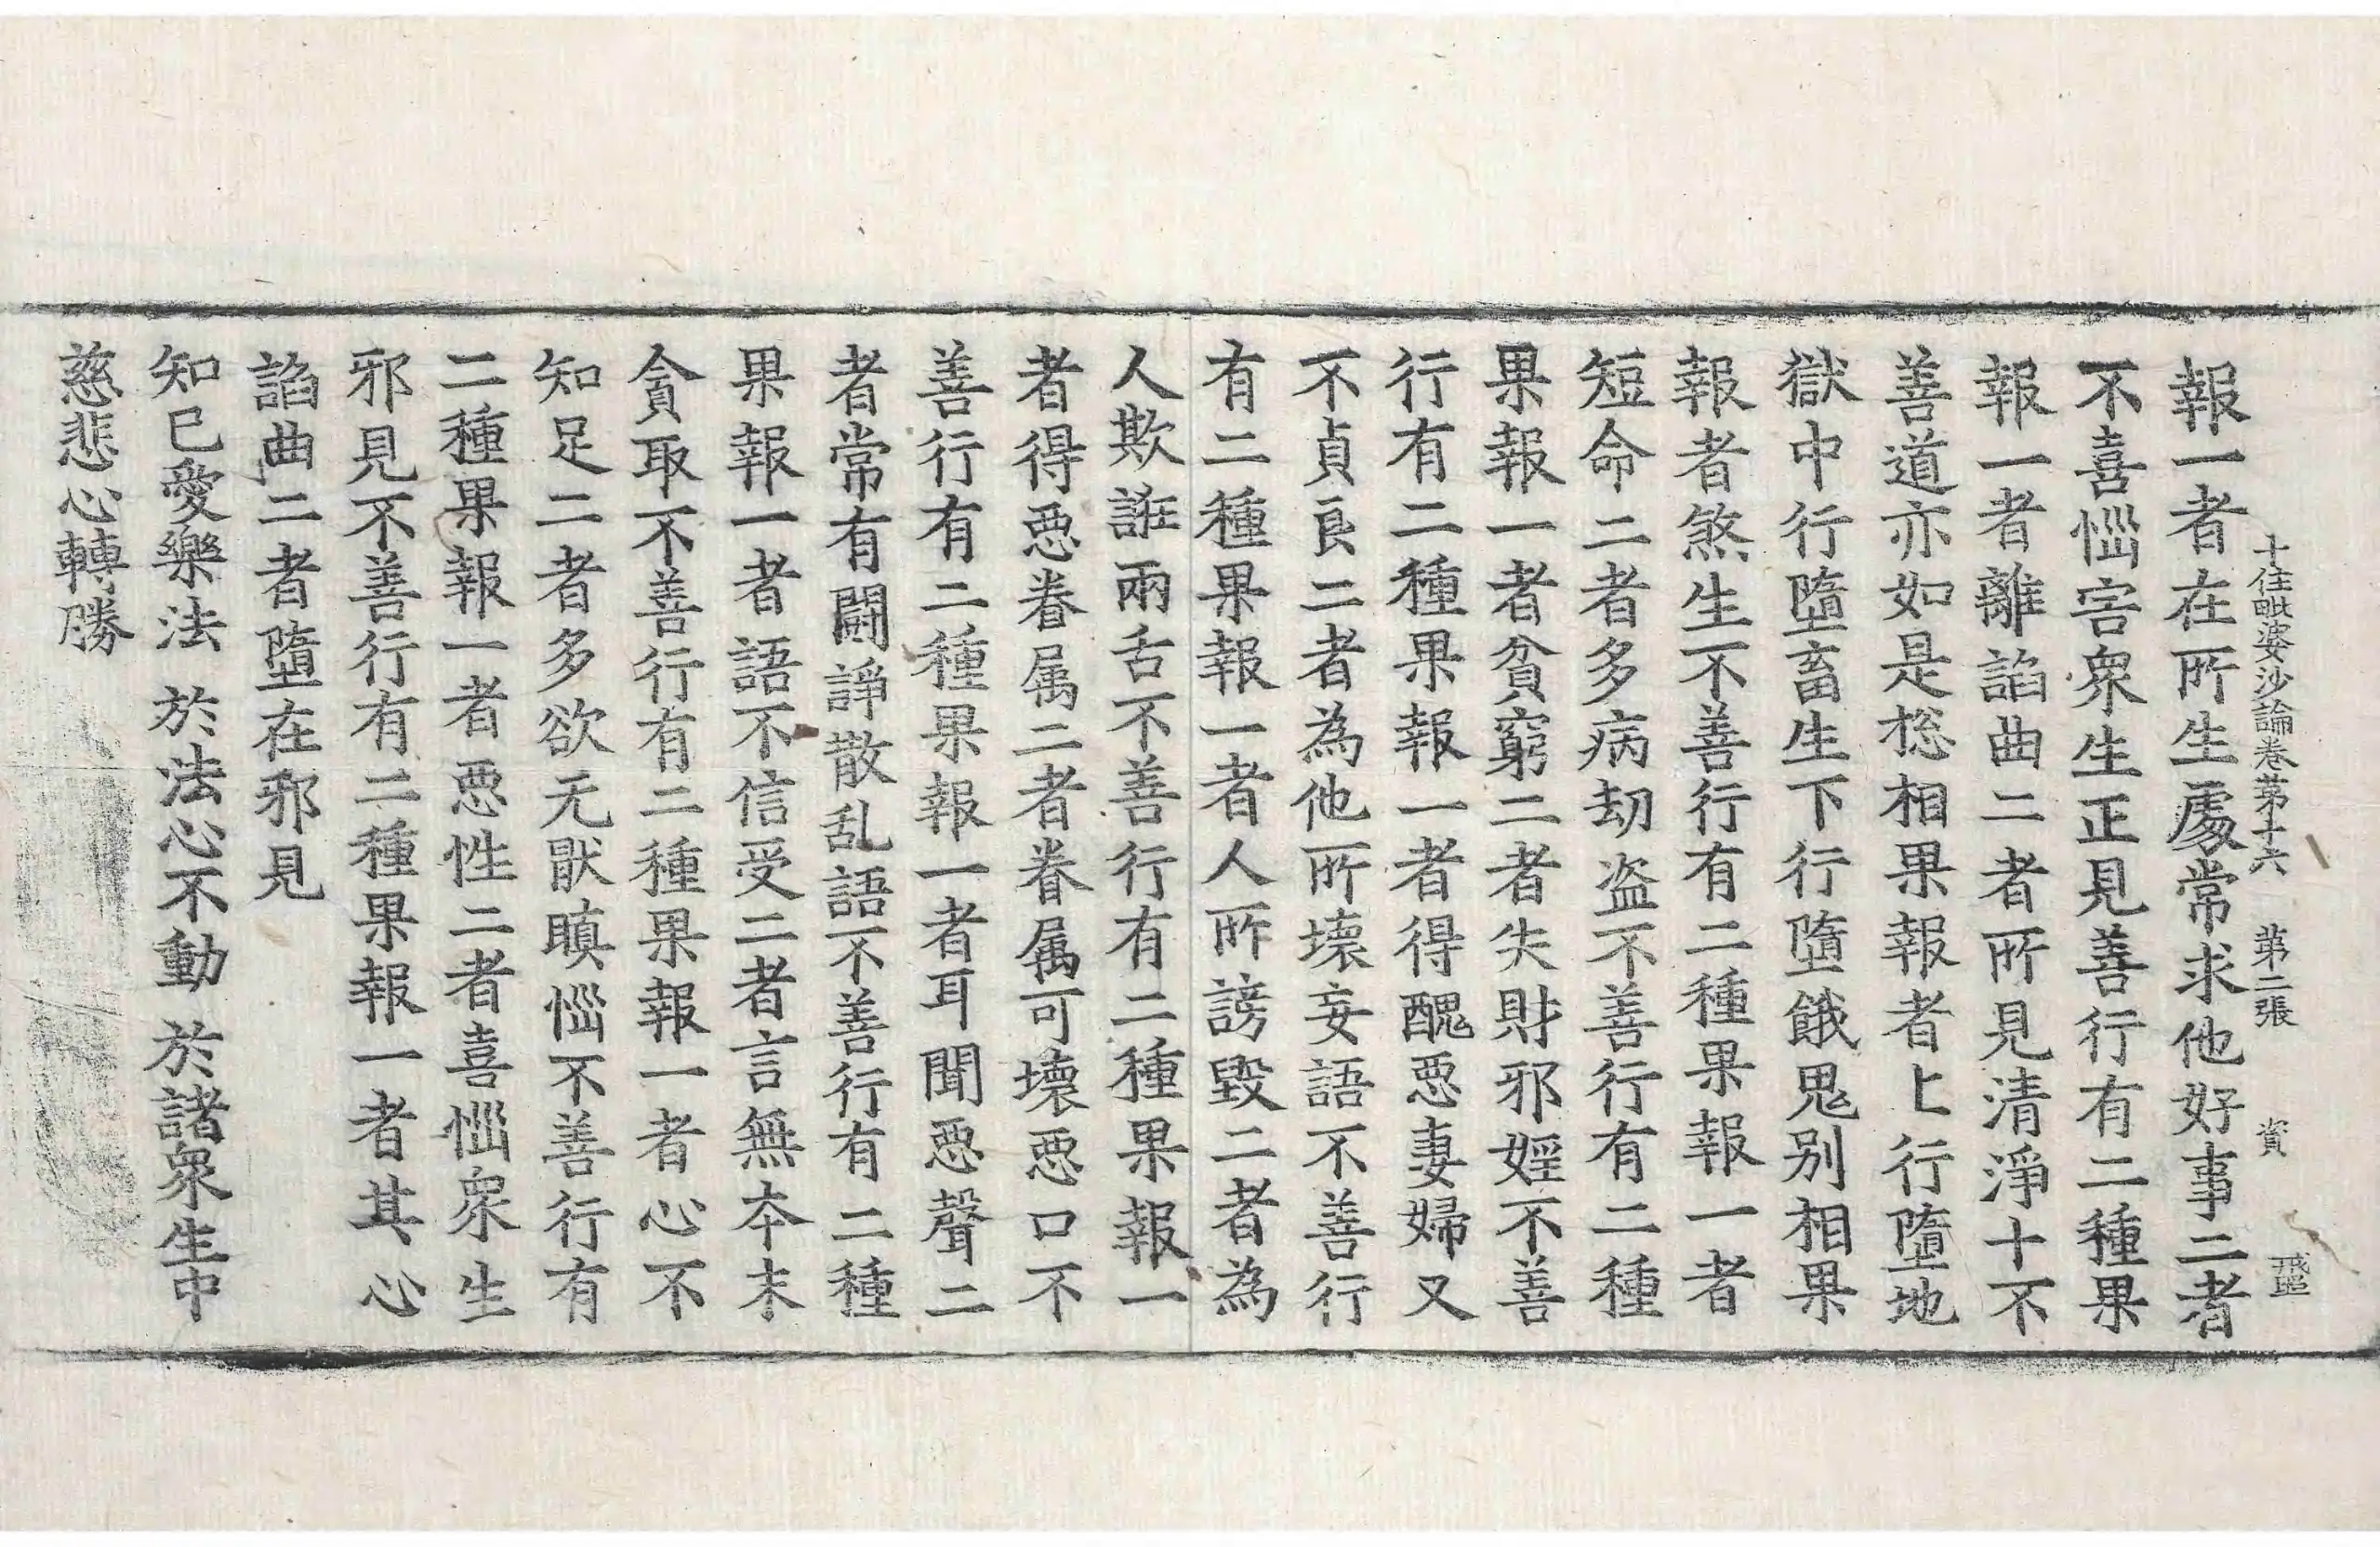 十住毗婆沙論卷第十六　第二張　資
報一者在所生處常求他好事二者
不喜惱害衆生正見善行有二種果
報一者離謟曲二者所見清淨十不
善道亦如是捴相果報者上行墮地
獄中行墮畜生下行墮餓鬼別相果
報者煞生不善行有二種果報一者
短命二者多病劫盜不善行有二種
果報一者貧窮二者失財邪婬不善
行有二種果報一者得醜惡妻婦又
不貞良二者為他所壞妄語不善行
有二種果報一者人所謗毀二者為
人欺誑兩舌不善行有二種果報一
者得惡眷属二者眷属可壞惡口不
善行有二種果報一者耳聞惡聲二
者常有闘諍散乱語不善行有二種
果報一者語不信受二者言無本末
貪取不善行有二種果報一者心不
知足二者多欲无猒瞋惱不善行有
二種果報一者惡性二者喜惱衆生
邪見不善行有二種果報一者其心
謟曲二者墮在邪見
知已愛樂法　於法心不動　於諸衆生中
慈悲心轉勝